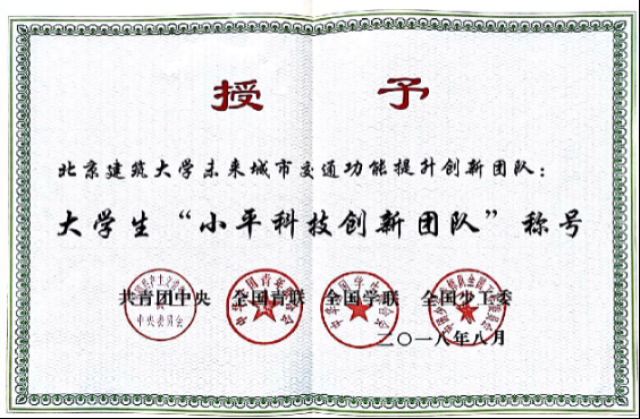 授予
北京建筑大学未来城市交通功能提升创新团队：
大学生“小平科技创新团队”称号
共青团中央 全国青联 全国学联 全国少工委
二〇一八年八月
中央委员会